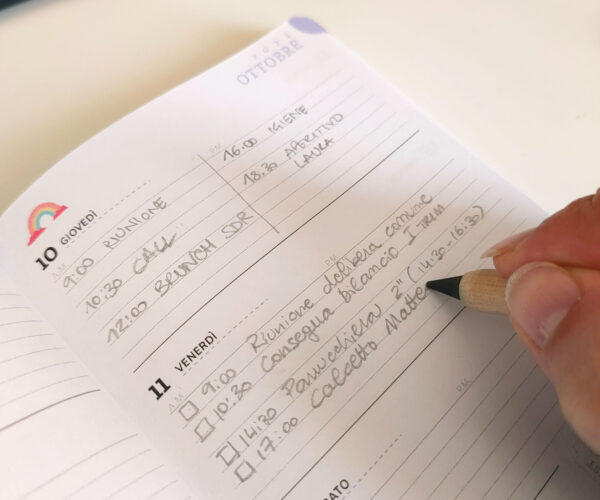 OTTOBRE
10 GIOVEDÌ
A.M.
9:00 RIUNIONE
10.30 CALL
12:00 BRUNCH SDR
P.M.
16:00 IGIENE
18.30 APERITIVO
LAURA
11 VENERDÌ
A.M.
P.M.
9:00 Riunione delibera comune
10:30 Consegna bilancio I TRIM
14:30 Parrucchiera 2" (14:30-16:30)
17:00 Calcetto Matteo
P.M.